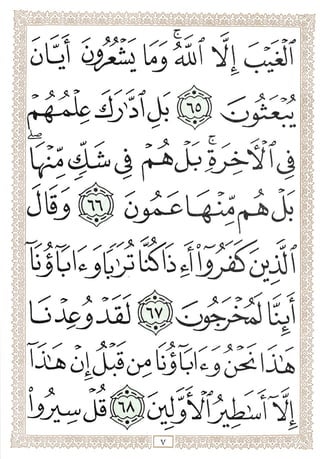 ٱلْغَيْبَ إِلَّا ٱللَّهُ ۚ وَمَا يَشْعُرُونَ أَيَّانَ
يُبْعَثُونَ ٦٥ بَلِ ٱدَّٰرَكَ عِلْمُهُمْ
فِى ٱلْأٓخِرَةِ ۚ بَلْ هُمْ فِى شَكٍّ مِّنْهَا ۖ
بَلْ هُم مِّنْهَا عَمُونَ ٦٦ وَقَالَ
ٱلَّذِينَ كَفَرُوٓا۟ أَءِذَا كُنَّا تُرَٰبًا وَءَابَآؤُنَآ
أَئِنَّا لَمُخْرَجُونَ ٦٧ لَقَدْ وُعِدْنَا
هَٰذَا نَحْنُ وَءَابَآؤُنَا مِن قَبْلُ إِنْ هَٰذَآ
إِلَّآ أَسَٰطِيرُ ٱلْأَوَّلِينَ ٦٨ قُلْ سِيرُوا۟
٧